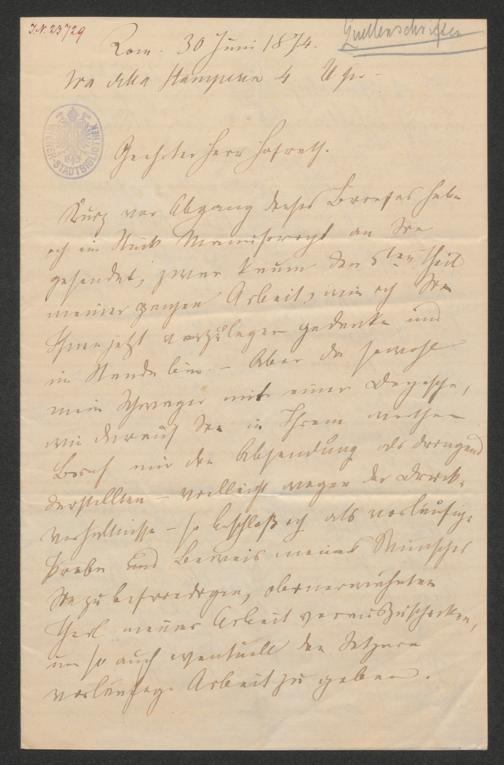 J.N. 23729
Quellenschriften
Rom. 30 Juni 1874.
Via della Stamperia 4
WIENER-STADTBIBLIOTHEK
Geehrter Herr Hofrath.
Kurz vor Abgang dieses Briefes habe
ich ein Stück Manuscript an Sie
gesendet, zwar kaum den 5ten Theil
meiner ganzen Arbeit, wie ich Sie
Ihnen jetzt vorzulegen gedenke und
im Stande bin. – Aber da sowohl
mein Schwager mit einer Depesche,
wie darauf Sie in Ihrem werthen
Brief mir die Absendung als dringend
darstellten – vielleicht wegen der Druck-
verhältnisse – so beschloß ich als vorläufige
Probe und Beweis meines Wunsches
Sie zu befriedigen, obenerwähnten
Theil meiner Arbeit vorauszuschicken,
um so auch eventuell den Setzern
vorläufige Arbeit zu geben.